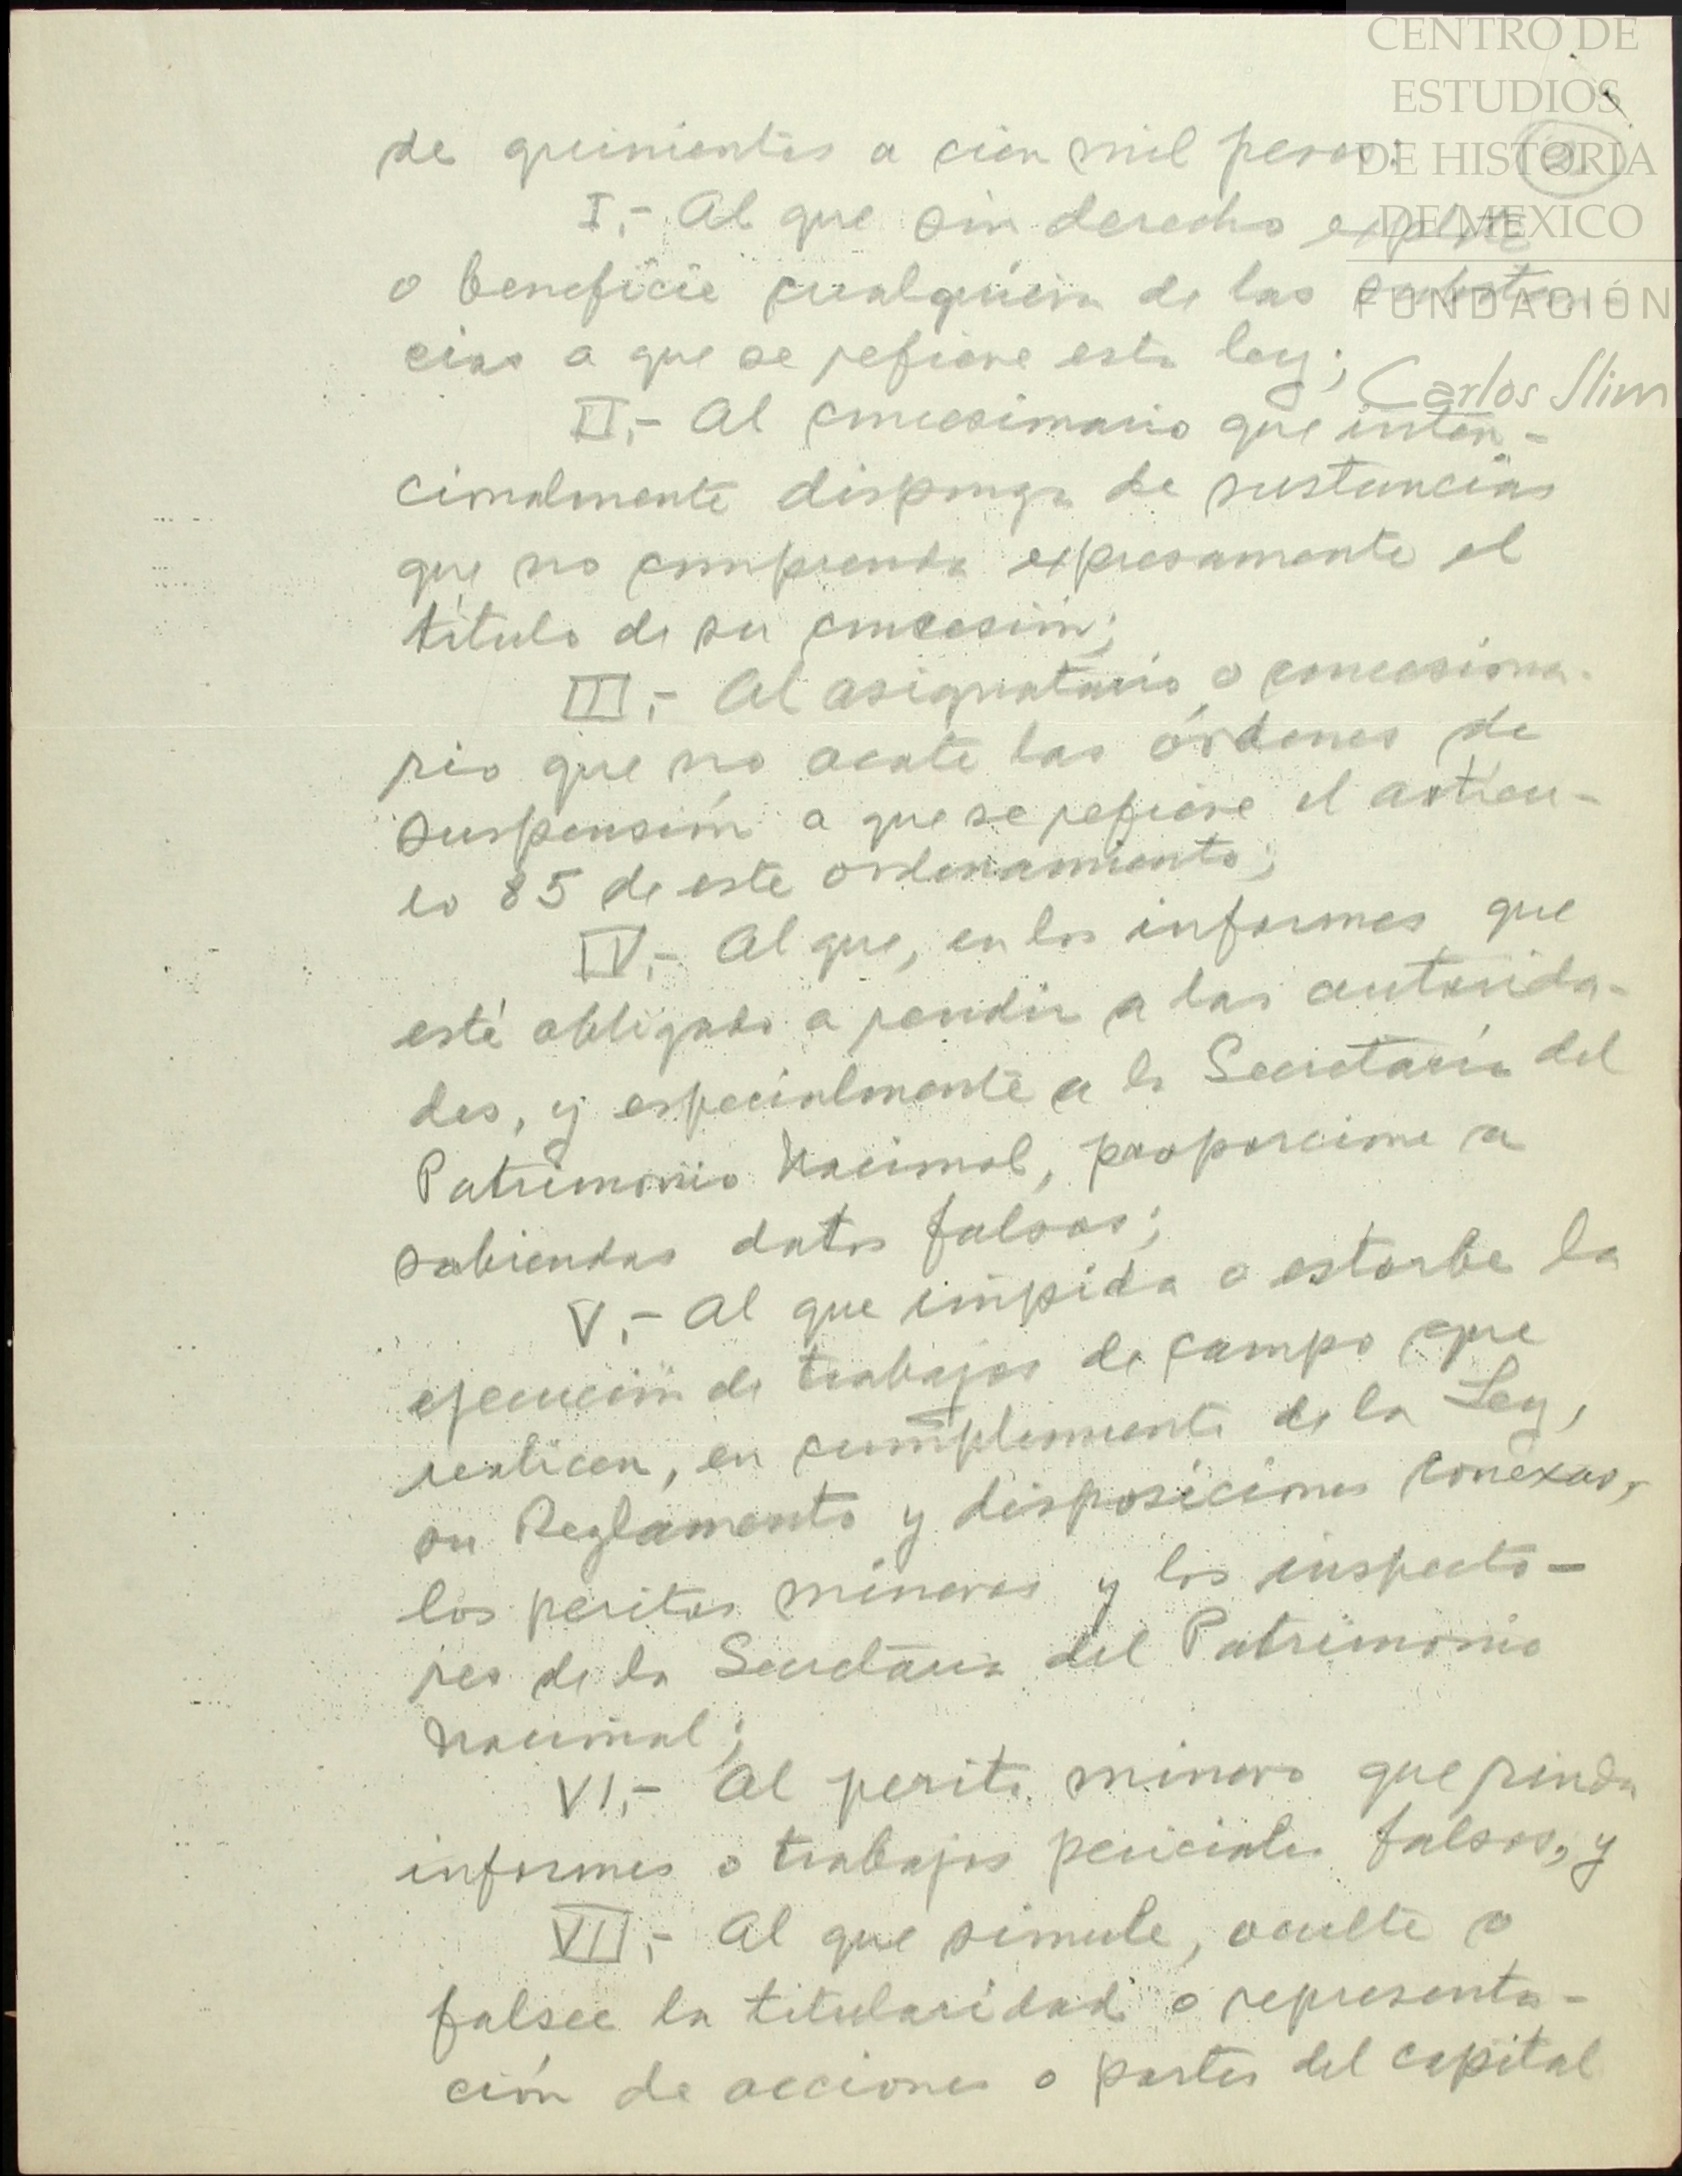 CENTRO DE
ESTUDIOS
DE HISTORIA
DE MEXICO
FUNDACIÓN
Carlos Slim
de quinientos a cien mil pesos:
I.- Al que sin derecho explote
o beneficie cualquiera de las substan-
cias a que se refiere esta ley;
II.- Al concesionario que inten-
cionalmente disponga de sustancias
que no comprenda expresamente el
título de su concesión;
III.- Al asignatario o concesiona-
rio que no acate las órdenes de
suspensión a que se refiere el artícu-
lo 85 de este ordenamiento;
IV.- Al que, en los informes que
esté obligado a rendir a las autorida-
des, y especialmente a la Secretaría del
Patrimonio Nacional, proporcione a
sabiendas datos falsos;
V.- Al que impida o estorbe la
ejecución de trabajos de campo que
realicen, en cumplimiento de la Ley,
su Reglamento y disposiciones conexas,
los peritos mineros y los inspecto-
res de la Secretaría del Patrimonio
Nacional;
VI.- Al perito minero que rinda
informes o trabajos periciales falsos, y
VII.- Al que simule, oculte o
falsee la titularidad o representa-
ción de acciones o partes del capital